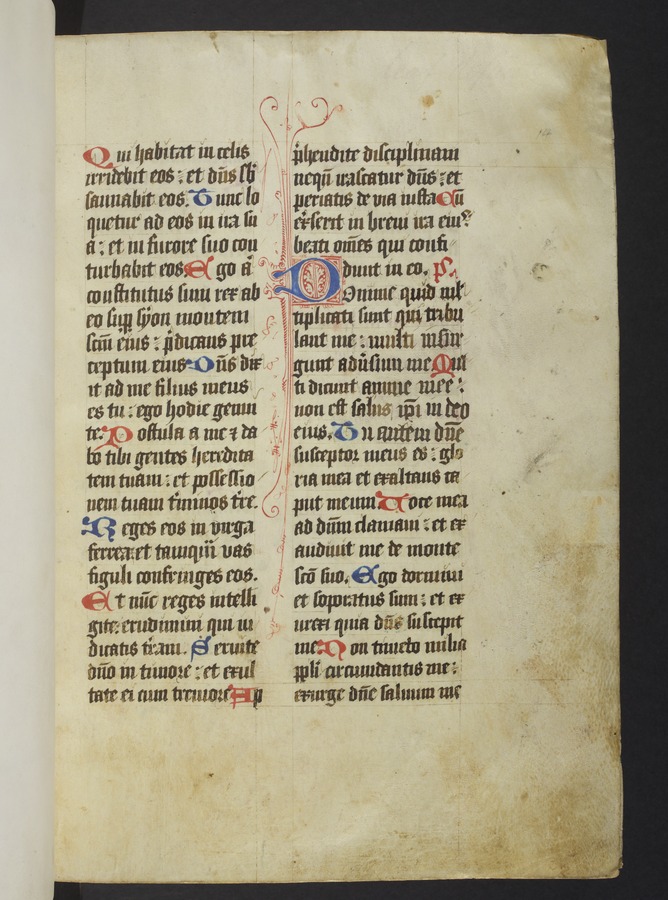 Qui habitat in celis
irridebit eos : et dn̄s sb̄
sannabit eos. Tunc lo
quetur ad eos in ira su
a : et in furore suo con
turbabit eos Ego ā
constitutus sum rex ab
eo sup̱ syon montem
sc̄m eius : p̄dicans pre
ceptum eius Dn̄s dix
it ad me filius meus
es tu : ego hodie genui
te. Postula a me ⁊ da
bo tibi gentes heredita
tem tuam : et possessio
nem tuam t̄minos tr̄e.
Reges eos in virga
ferrea : et tamqū vas
figuli confringes eos.
Et nūc reges intelli
gite : erudimini qui iu
dicatis tr̄am. Seruite
dn̄o in timore : et exul
tate ei cum tremore Ap
p̄hendite disciplinam
neqū irascatur dn̄s : et
periatis de via iusta Cū
exserit in breui ira eiuˀ
beati om̄es qui confi
dunt in eo. Ps.
Domine quid ml̄
tiplicati sunt qui tribu
lant me : multi insur
gunt adūsum me Mul
ti dicunt anime mee :
non est salus ip̄i in deo
eius. Tu autem dn̄e
susceptor meus es : glo
ria mea et exaltans ca
put meum Uoce mea
ad dn̄m clamaui : et ex
audiuit me de monte
scō suo. Ego dormiui
et soporatus sum : et ex
urexi quia dn̄s suscepit
me Non timebo milia
ppl̄i circumdantis me :
exurge dn̄e saluum me